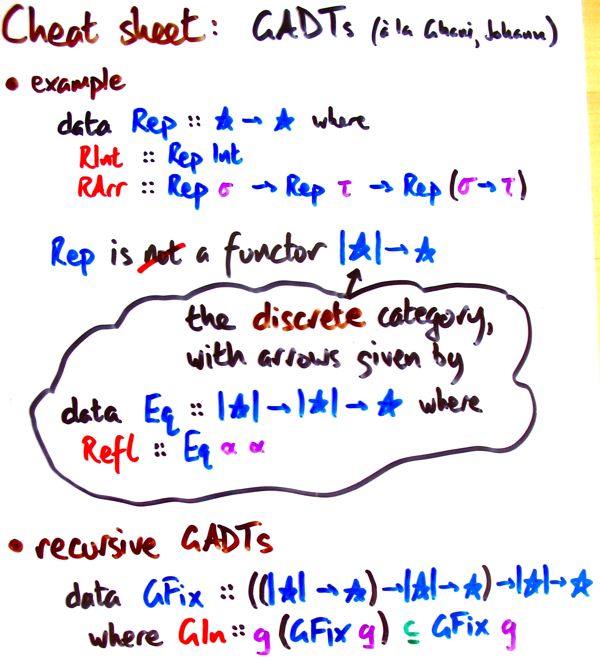 Cheat sheet: GADTs (à la Ghani, Johann)
• example
data Rep :: ★ → ★ where
RInt :: Rep Int
RArr :: Rep σ → Rep τ → Rep (σ → τ)
Rep is not a functor |★| → ★
the discrete category,
with arrows given by
data Eq :: |★| → |★| → ★ where
Refl :: Eq α α
• recursive GADTs
data GFix :: ((|★| → ★) → |★| → ★) → |★| → ★
where GIn :: g (GFix g) ⊆ GFix g